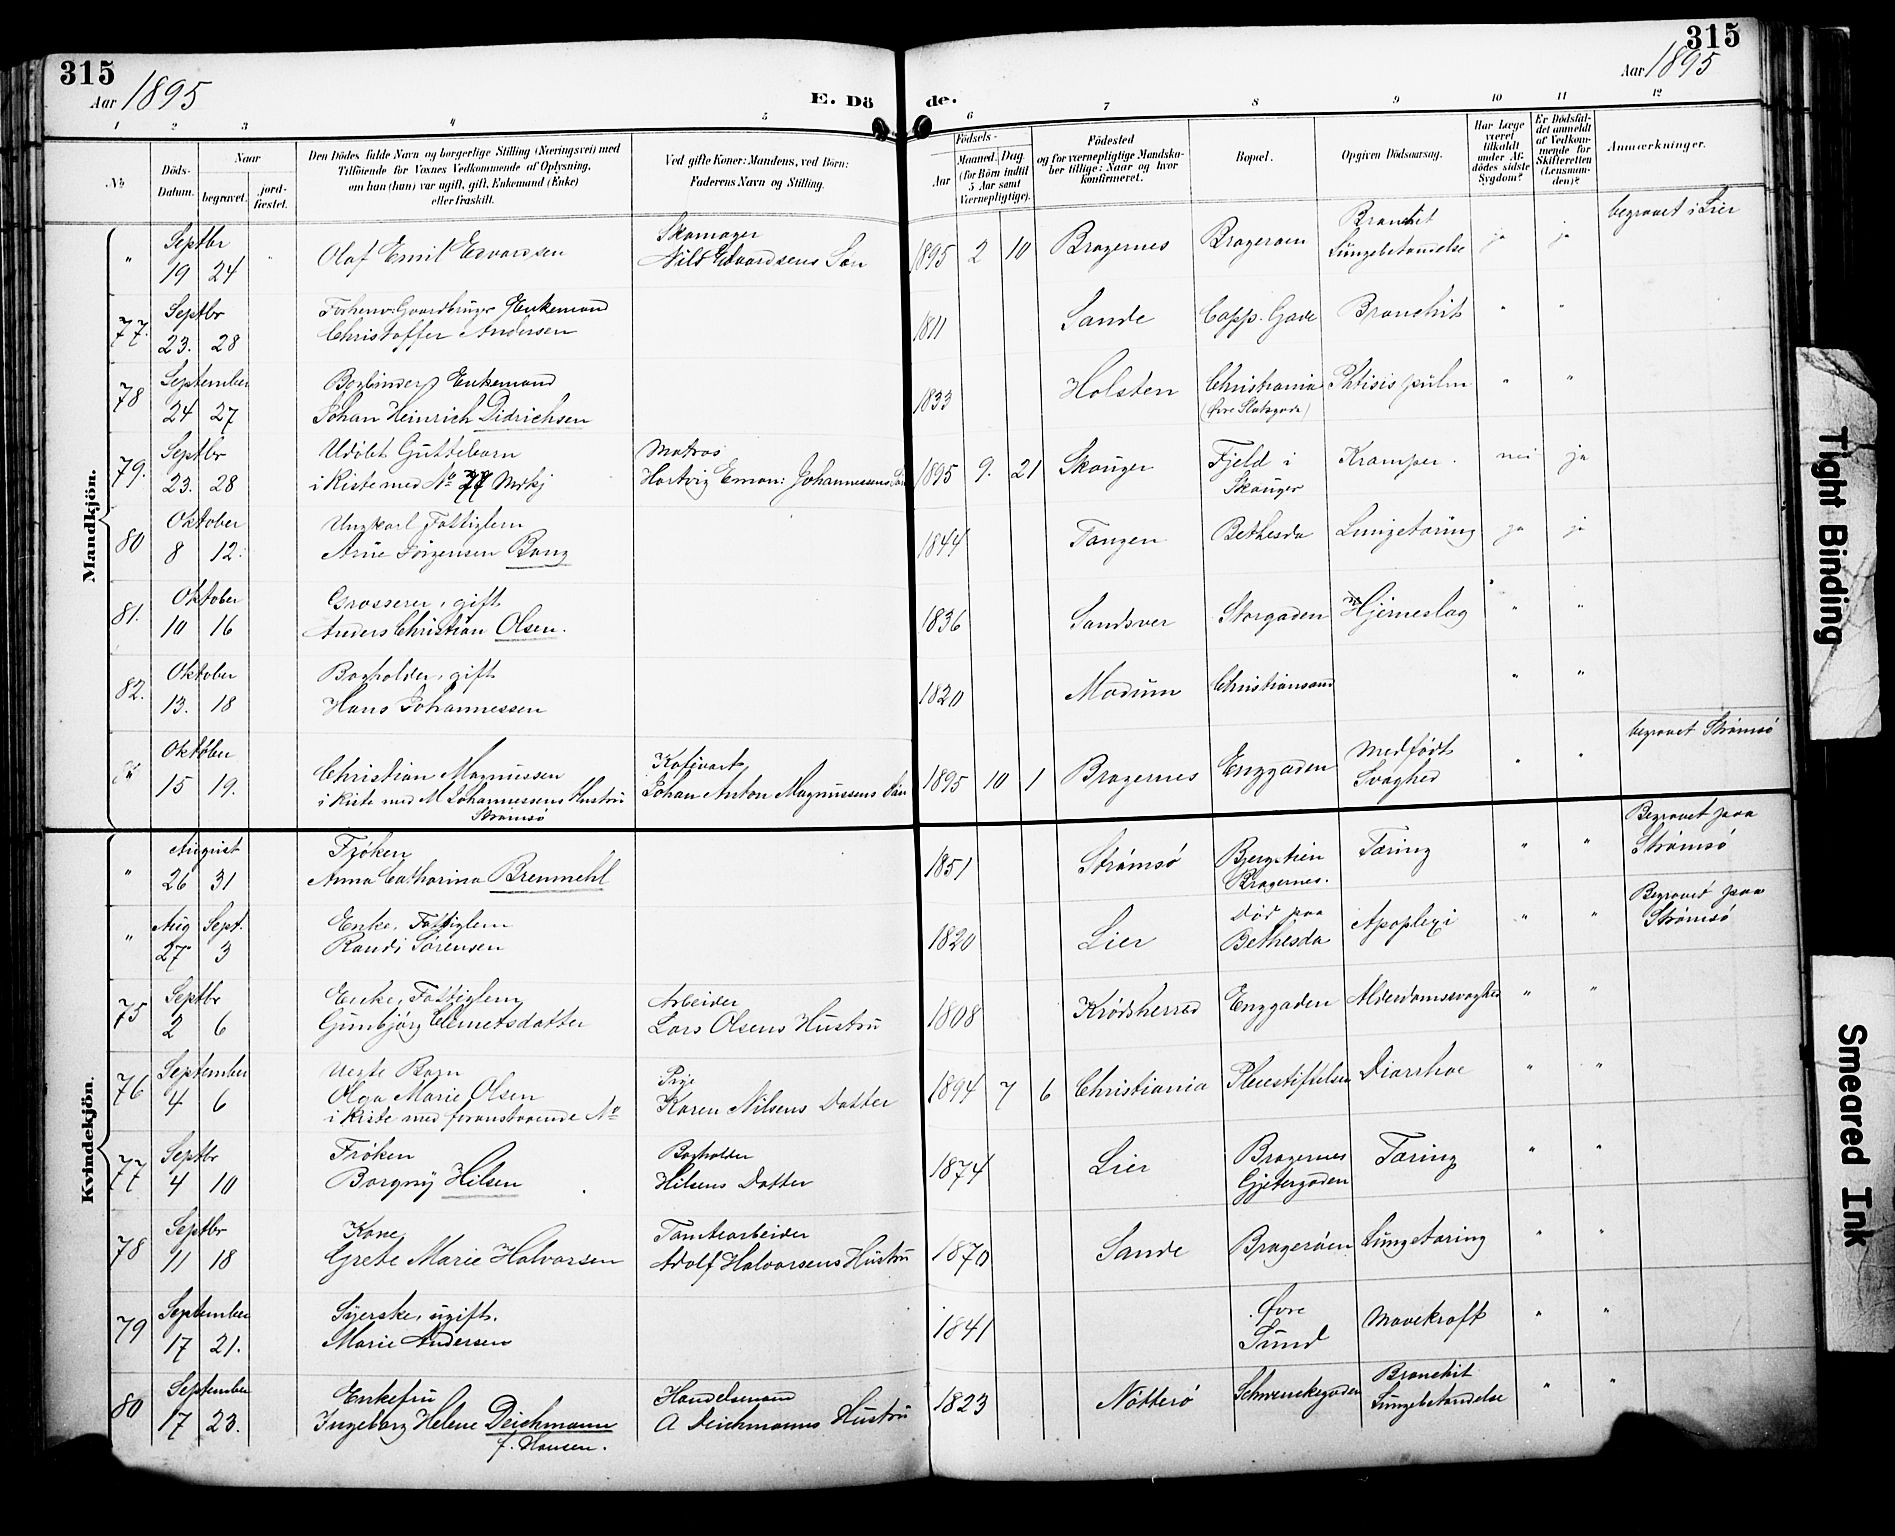 315
Aar 1895
E. Dö
de.
315
Aar 1895
1 2 3 4 5 6 7 8 9 10 11 12
No
Döds-Datum.
Naar
begravet.
jord-fæstet.
Den Dödes fulde Navn og borgerlige Stilling (Næringsvei) med
Tilföiende for Voxnes Vedkommende af Oplysning,
om hun (han) var ugift, gift, Enkemand (Enke)
eller fraskilt.
Ved gifte Koner: Mandens, ved Börn:
Faderens Navn og Stilling.
Födsels-
Aar
Maaned. Dag.
(for Börn indtil
5 Aar samt
Værnepligtige).
Födested
og for værnepligtige Mandska-
ber tillige: Naar og hvor
konfirmeret.
Bopæl.
Opgiven Dödsaarsag.
Har Læge
været
tilkaldt
under Af-
dödes sidste
Sygdom?
Er Dödsfal-
det anmeldt
af Vedkom-
mende for
Skifteretten
(Lensman-
den)?
Anmærkninger.
Mandkjön.
" Septbr Skomager Bronchit begravet i Lier
19 24 " Olaf Emil Edvardsen Nils Edvardsens Søn 1895 2 10 Bragernes Brageröen Lungebetændelse ja ja
77. Septbr Forhenv: Gaardbruger Enkemand
23. 28 Christoffer Andersen 1811 Sande Copp. Gade Bronchit " "
78 September Bogbinder, Enkemand
24 27 Johan Heinrich Didrichsen 1833 Holsten Christiania Phtisis pulm " "
(Øvre Slotsgade)
79. Septbr Udöbt Guttebarn Matros
23. 28 i Kiste med No 77 Hartvig Eman: Johannessens Søn 1895 9. 21 Skouger Fjeld i Skouger Kramper. nei ja
80 Oktober Ungkarl Fattiglem
8 12. Arne Jörgensen Bang 1844 Tangen Bethesda Lungetæring ja ja
81. Oktober Grosserer, gift
10 16 Anders Christian Olsen. 1836 Sandsver Storgaden Hjerneslag " "
82. Oktober Bogholder, gift
13. 18 Hans Johannessen 1820 Modum Christiansand " "
Oktober Medfödt begravet Strömsö
15 19. Christian Magnussen Johan Anton Magnussens Søn 1895 10 1 Bragernes Enggaden Svaghed " "
i Kiste med M Johannessens Hustru
Strömsö
Kvindekjön.
" August Frøken Begravet paa
26 31 Anna Catharina Bremmehl 1851 Strömsö Bragernes. Tæring " " Strömsö
" Aug Sept. Enke, Fattiglem Död paa Begraved paa
27 3 Randi Sørensen 1820 Lier Bethesda Apoplexi " " Strömsö
75 Septbr Enke, Fattiglem Arbeider
2 6 Gunbjørg Clemetsdatter Lars Olsens Hustru 1808 Krödsherred Enggaden Alderdomssvaghed " "
76 September Uegte Barn Pige
4 6 Olga Marie Olsen Karen Nilsens Datter 1894 7 6 Christiania Pleiestiftelsen Diarrhoe " "
i Kiste med foranstaaende No
77 Septbr Frøken Bogholder Bragernes
4 10 Borgny Hilsen Hilsens Datter 1874 Lier Gjetergaden Tæring " "
78 Septbr Kone Tomtearbeider
11 18 Grete Marie Halvorsen Adolf Halvorsens Hustru 1870 Sande Brageröen Lungetæring " "
79 September Syerske, ugift. Øvre
17 21. Marie Andersen 1841 Sund Mavekræft " "
80 September Enkefru Handelsmand Bronchit
17 23. Ingeborg Helene Deichmann A Deichmanns Hustru 1823 Nötterö Schwenckegaden Lungebetændelse " "
f. Hansen.
Tight Binding
Smeared Ink